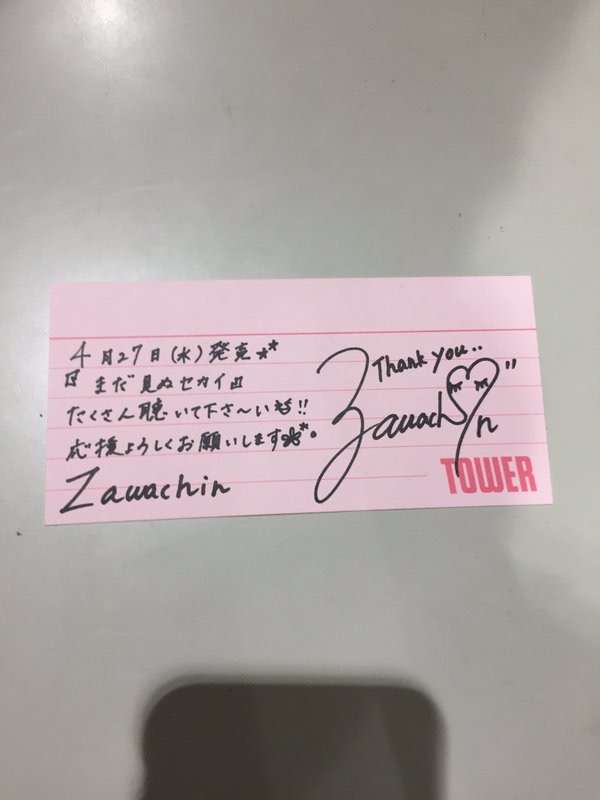 4月27日(水)発売**
『まだ見ぬセカイ』
たくさん聴いて下さ〜い!!
応援よろしくお願いします*。
Zawachin
Thank you..
Zawachin"
TOWER